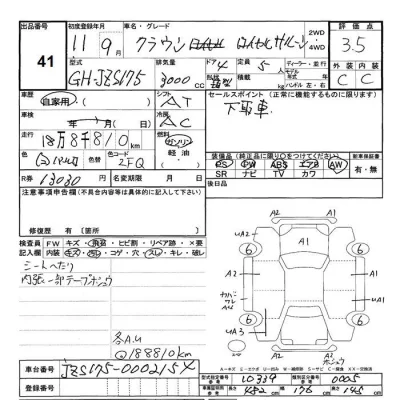 出品番号
41
初度登録年月
車名・グレード
11年9月
クラウン ロイヤルサルーン
2WD
・
4WD
評価点
3.5
型式
GH-JZS175
排気量
3000
CC
ドア
4
形状
定員
5人
ディーラー・並行
モデル年式
年
ハンドル 左・右
外装
内装
C
C
車歴
自家用
シフト
AT
セールスポイント(正常に機能するものに限ります)
下取車
車検
年 月
冷房
AC
走行
18万8千810
km
燃料
ガソリン
軽油
色
色コード
2FQ
装備品(純正品に限り○をつけてください)
新車保証書
PS PW ABS エアB AW
SR ナビ TV カワ
有・無
R券
13030
名変期限
月 日
後日品
注意事項申告欄(不具合内容等は具体的に記入して下さい)
修復歴
有 [箇所
]
検査員記入欄
FW
キズ・飛石・ヒビ割・リペア跡・×要
内装
キズ・汚れ・コゲ・穴・スレ・キレ・破レ
シートへたり
内張一部テープホシュウ
各A.U
@188810km
UA2
A1
A2
A1
6
6
6
6
A2
A1
カワ
ワレ
UA3
A2
A2
A2
ホシュウ
車台番号
JZS175-0002154
登録番号
型式指定番号
10339
類別区分番号
0005
長さ
482
幅
176
高さ
145